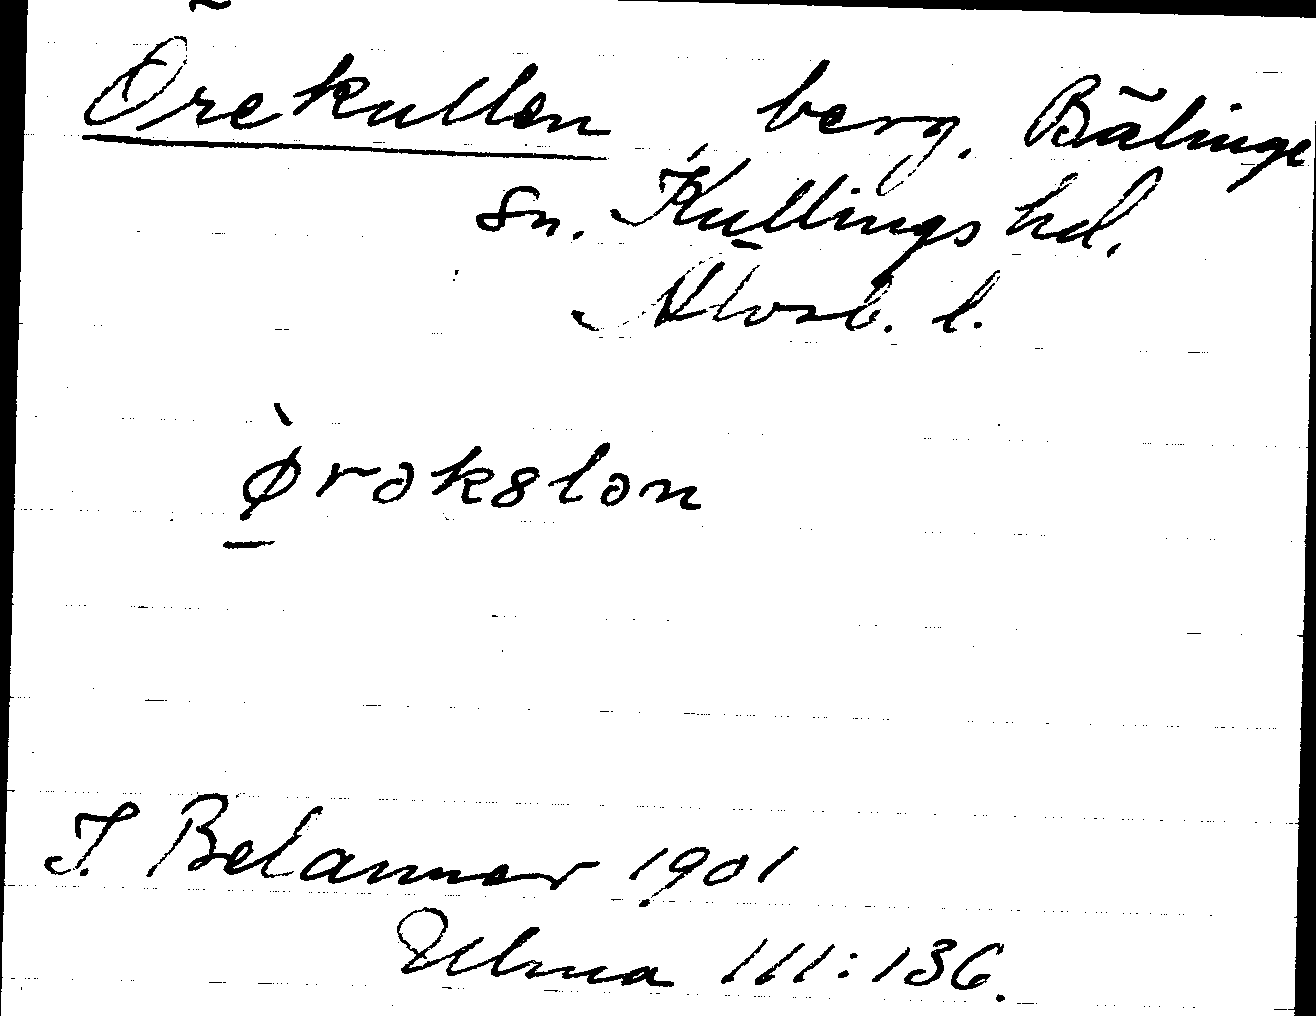 Örekullen, berg. Bälinge
sn. Kullings hd.
Älvsb. l.
ø̱̀rəkȣlən
J. Belanner 1901
Ulma 111:136.